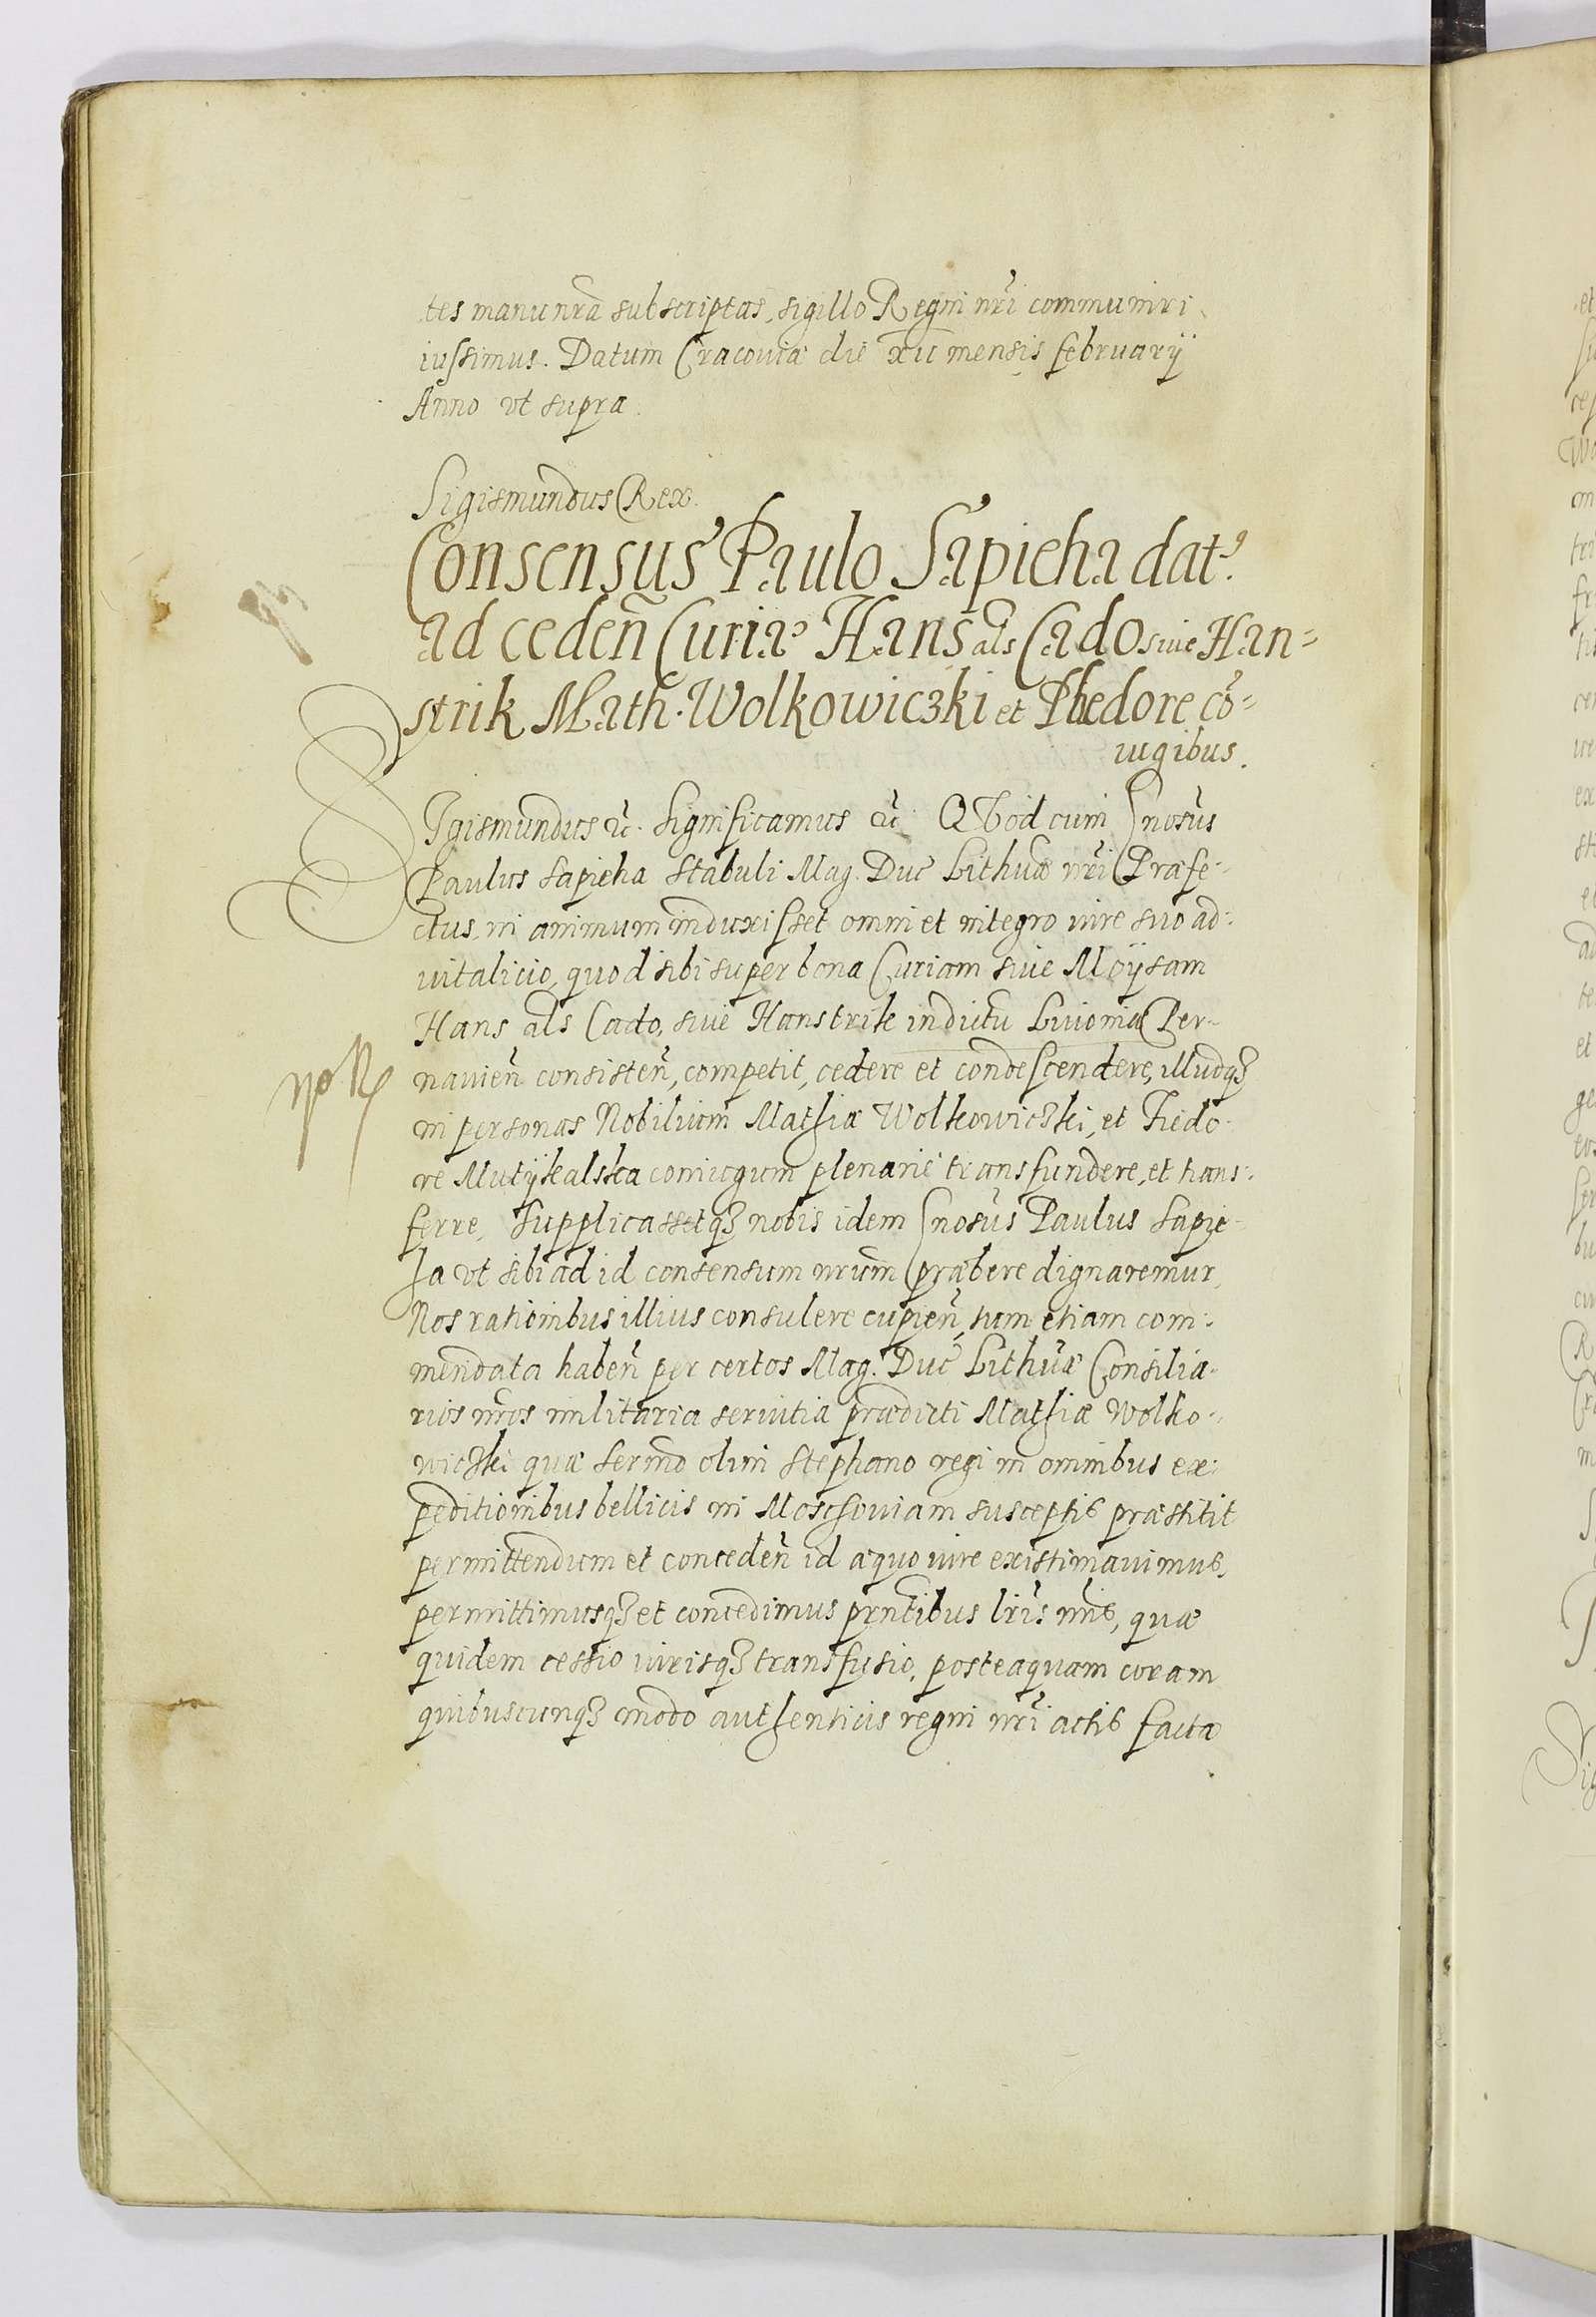 tes manu nrã subscriptas, sigillo Regni nri communiri
iussimus. Datum Cracouiæ die xii mensis februarij
Anno vt supra.
Sigismundus Rex.
Consensus Paulo Sapieha dat9
ad ceden̄ Curiæ Hans als Cado siue Han=
strik Math. Wolkowiczki et Phedore cõ=
iugibus.
SIgismundus &c. Significamus &c. QVod cum Gnosus
Paulus Sapieha Stabuli Mag. Duc Lithuæ nri Præfe-
ctus, in animum induxisset omni et integro iure suo ad-
uitalicio, quod sibi super bona Curiam siue Moysam
Hans als Cado, siue Hanstrik in dictu Liuoniæ Per-
nauien̄ consisten̄, competit, cedere et condescendere, illudq3
in personas Nobilium Mathiæ Wolkowiczki, et Fiedo-
re Mutÿkalska coniugum plenarie transfundere, et trans-
ferre, Supplicassetq3 nobis idem Gnosus Paulus Sapie-
ha vt sibi ad id consensum nrum præbere dignaremur,
Nos rationibus illius consulere cupien̄, tum etiam com-
mendata haben̄ per certos Mag. Duc Lithuæ Consilia-
rios nros militaria seruitia prædicti Mathiæ Wolko-
wiczki quæ Sermo olim Stephano regi in omnibus ex-
peditionibus bellicis in Moschouiam susceptis præstitit
permittendum et conceden̄ id æquo iure existimauimus,
permittimusq3 et concedimus prntibus lris nris, quæ
quidem cessio iurisq3 transfusio, posteaquam coram
quibuscunq3 modo authenticis regni nri actis facta